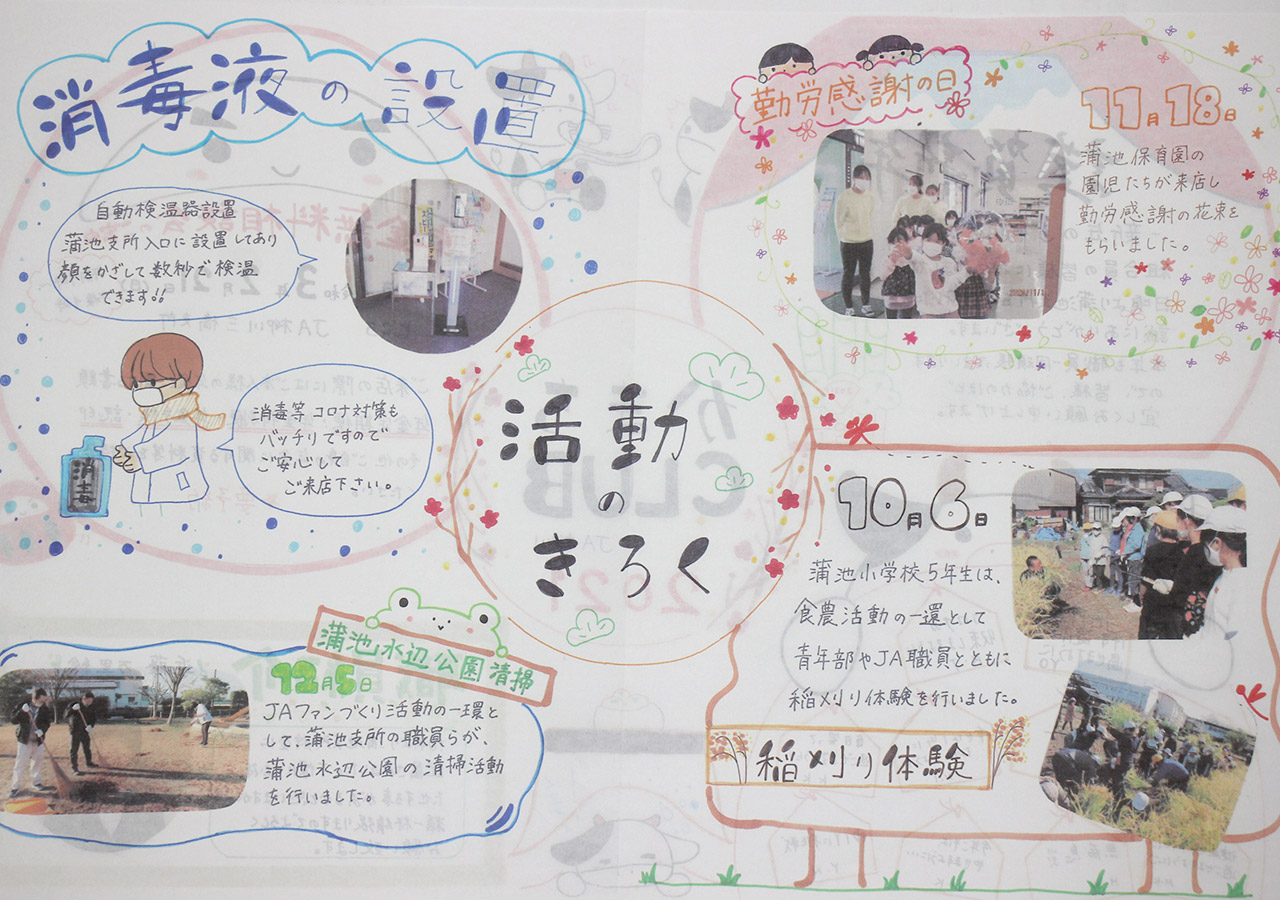 消毒液の設置
自動検温器設置
蒲池支所入口に設置してあり
顔をかざして数秒で検温
できます!!
消毒等コロナ対策も
バッチリですので
ご安心して
ご来店下さい。
消毒
勤労感謝の日
11月18日
蒲池保育園の
園児たちが来店し
勤労感謝の花束を
もらいました。
活動
の
きろく
10月6日
蒲池小学校5年生は、
食農活動の一還として
青年部やJA職員とともに
稲刈り体験を行いました。
稲刈り体験
蒲池水辺公園清掃
12月5日
JAファンづくり活動の一環と
して、蒲池支所の職員らが、
蒲池水辺公園の清掃活動
を行いました。